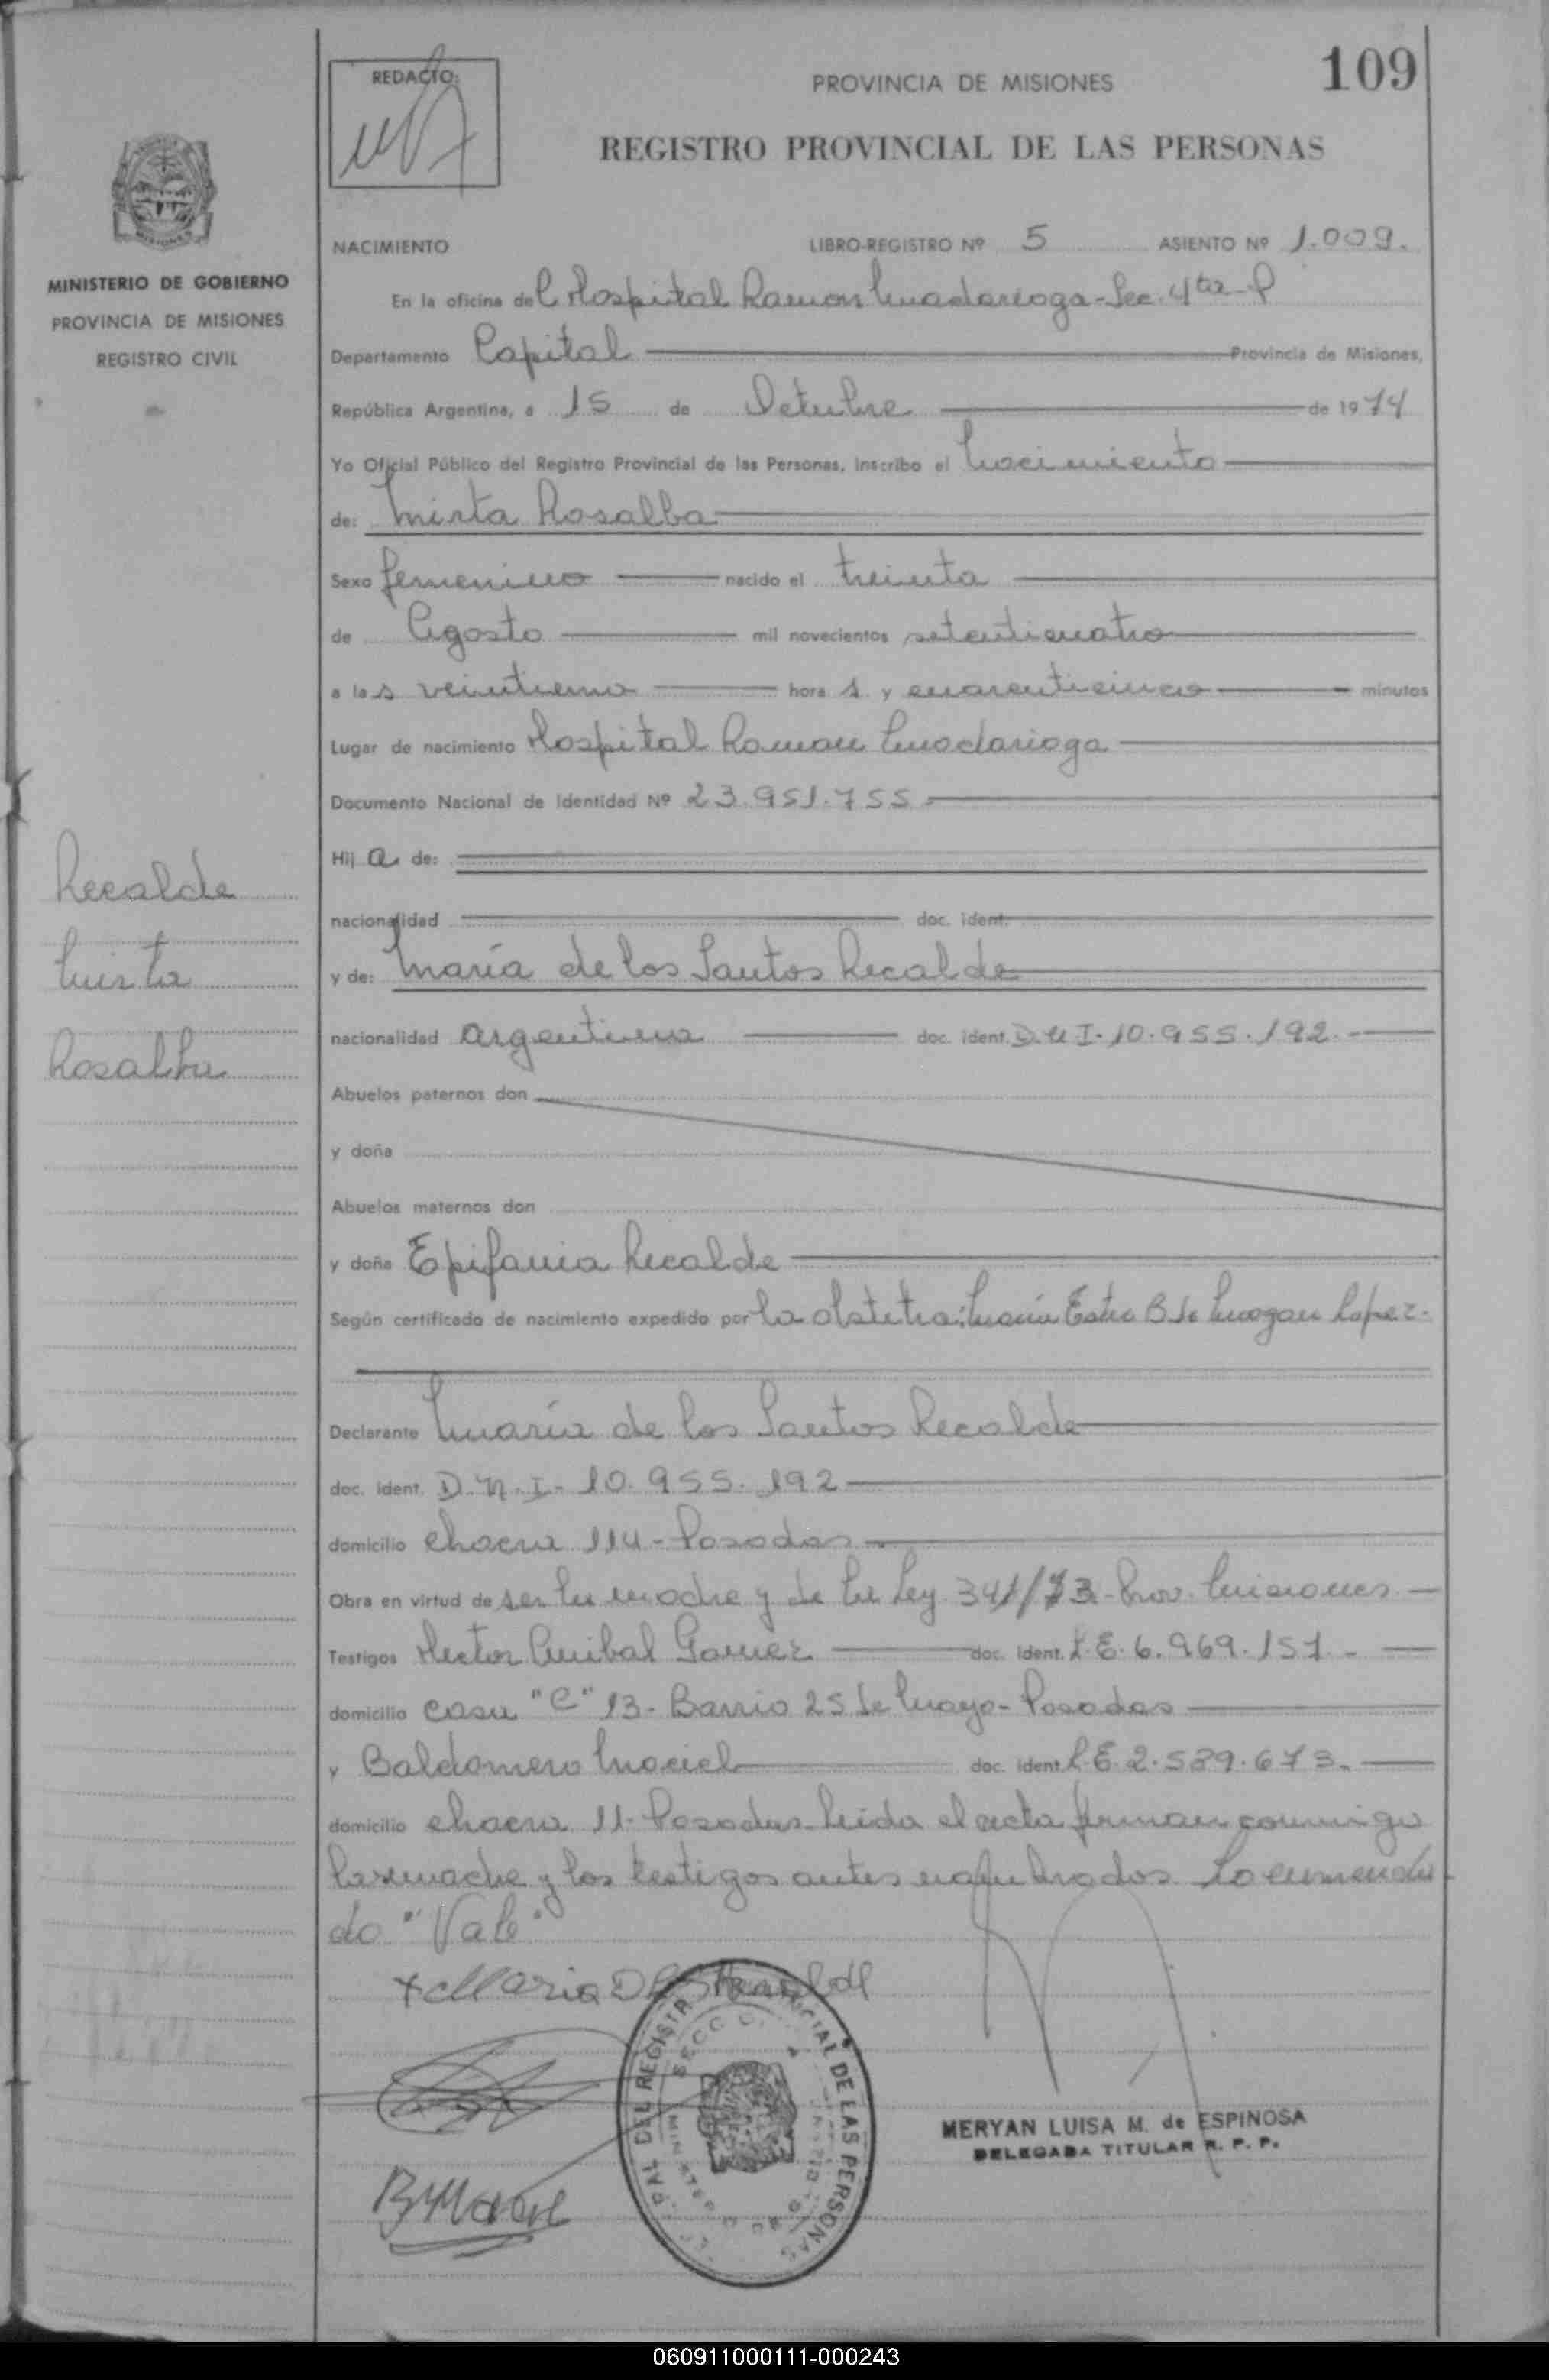 109
REDACTO:
PROVINCIA DE MISIONES
REGISTRO PROVINCIAL DE LAS PERSONAS
MISIONES
MINISTERIO DE GOBIERNO
PROVINCIA DE MISIONES
REGISTRO CIVIL
NACIMIENTO LIBRO-REGISTRO Nº 5 ASIENTO Nº 1.009.
En la oficina del Hospital Ramon Madariaga - Sec. 4ta - P
Departamento Capital Provincia de Misiones,
República Argentina, a 15 de Octubre de 1974
Yo Oficial Público del Registro Provincial de las Personas, inscribo el Nacimiento
de: Mirta Rosalba
Sexo femenino nacido el treinta
de Agosto mil novecientos setenticuatro
a las veintiuna hora s y cuarenticinco minutos
Lugar de nacimiento Hospital Ramon Madariaga
Documento Nacional de Identidad Nº 23.951.755.
Recalde
Mirta
Rosalba
Hij a de:
nacionalidad doc. ident.
y de: María de los Santos Recalde
nacionalidad argentina doc. ident. D.N.I. 10.955.192.
Abuelos paternos don
y doña
Abuelos maternos don
y doña Epifania Recalde
Según certificado de nacimiento expedido por la obstetra: María B. de Lopez.
Declarante María de los Santos Recalde
doc. ident. D.N.I. - 10.955.192
domicilio chacra 114 - Posadas
Obra en virtud de ser la madre y de la Ley 341/73 - Prov. Misiones
Testigos Hector Anibal Gomez doc. ident. L.E. 6.969.151.
domicilio casa "C" 13 - Barrio 25 de Mayo - Posadas
y Baldomero Maciel doc. ident L.E. 2.539.673.
domicilio chacra 11 - Posadas leida el acta firman conmigo
la madre y los testigos antes nombrados. Lo enmenda
do "Vale"
Maria D L S Recalde
DEL REGISTRO PROVINCIAL DE LAS PERSONAS
MERYAN LUISA M. de ESPINOSA
DELEGADA TITULAR R. P. P.
060911000111-000243